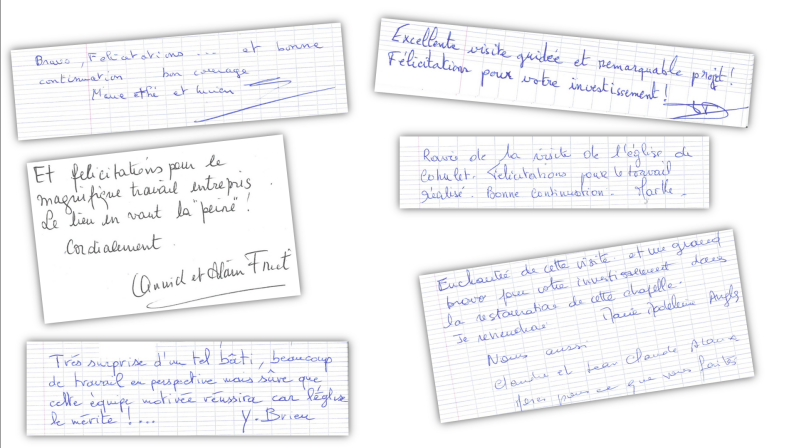 Bravo, Félicitations ... et bonne
continuation bon courage
et
Et félicitations pour le
magnifique travail entrepris.
Le lieu en vaut la "peine" !
Cordialement.
et Alain
Très surprise d'un tel bâti, beaucoup
de travail en perspective mais sûre que
cette équipe motivée réussira car l'église
le mérite !....
Y. Brieu
Excellente visite guidée et remarquable projet !
Félicitation pour votre investissement !
Ravie de la visite de l'église de
Félicitations pour le travail
réalisé. Bonne continuation. Marthe.
Enchantée de cette visite et un grand
bravo pour votre investissement dans
la restauration de cette chapelle.
Je reviendrai Marie Madeleine
Nous aussi
Claudie et Jean Claude
pour ce que vous faites